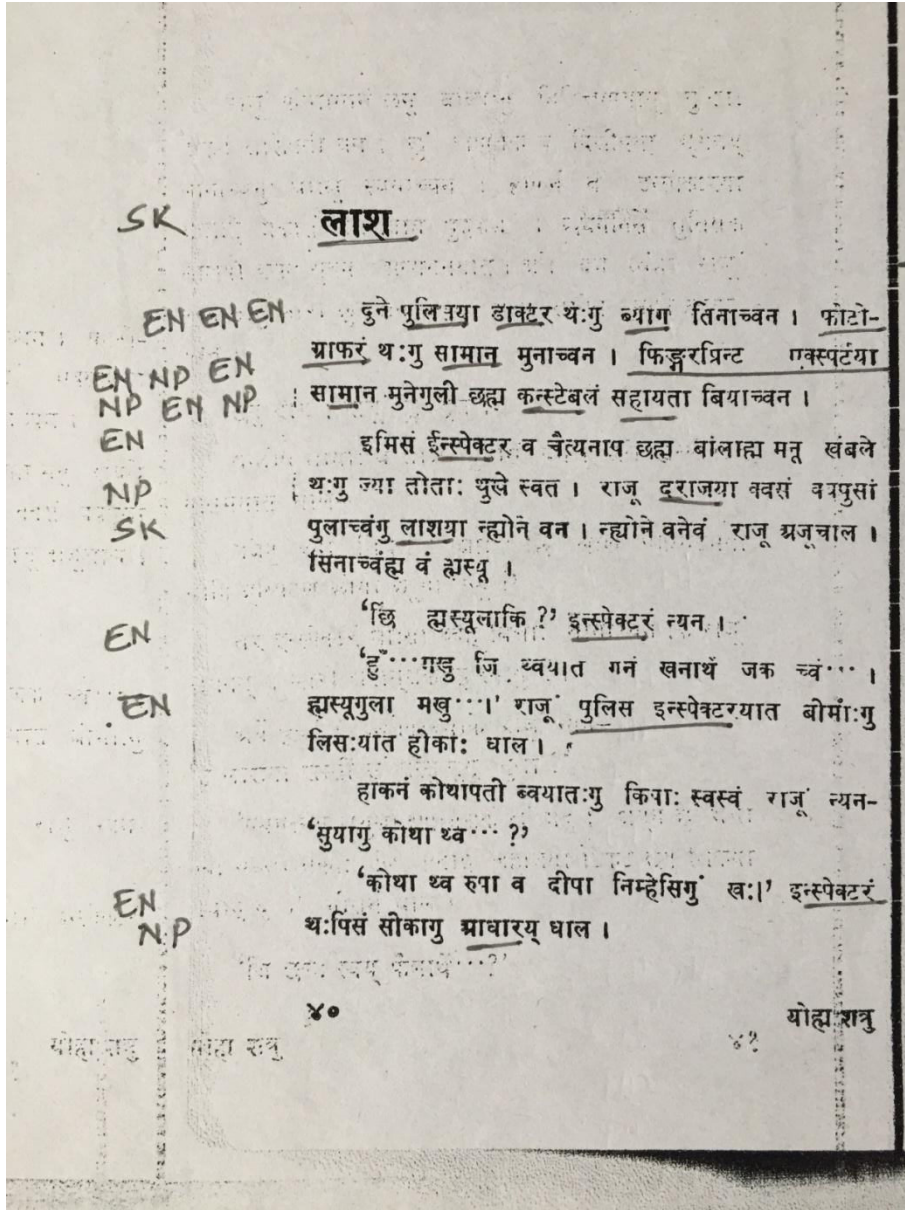 SK लाश
EN EN EN दुने पुलिसया डाक्टर थःगु ब्याग तिनाच्वन । फोटो-
ग्राफरं थःगु सामान मुनाच्वन । फिङ्गरप्रिन्ट एक्स्पर्टया
EN NP EN
NP EN NP सामान मुनेगुली छह्म कन्स्टेबलं सहायता बियाच्वन ।
EN इमिसं ईन्स्पेक्टर व चैत्यनाप छह्म बांलाह्म मनू खंबले
NP थःगु ज्या तोताः थुखे स्वत । राजू दराजया क्वसं
SK पुलाच्वंगु लाशया न्ह्योने वन । न्ह्योने वनेवं राजू अजूचाल ।
सिनाच्वंह्म वं ह्मस्यू ।
EN ‘छि ह्मस्यूलाकि ?’ इन्स्पेक्टरं न्यन ।
‘हुँ···मखु जि थ्वयात गनं खनाथें जक च्वं··· ।
EN ह्मस्यूगुला मखु···।’ राजूं पुलिस इन्स्पेक्टरयात
लिसःयात हीकाः धाल ।
हाकनं कोथापती ब्वयातःगु किपाः स्वस्वं राजूं न्यन-
‘सुयागु कोथा थ्व··· ?’
‘कोथा थ्व रुपा व दीपा निम्हेसिगुं खः।’ इन्स्पेक्टरं
EN
NP थःपिंसं सीकागु आधारय् धाल ।
४० योह्म शत्रु
योह्म शत्रु ४१